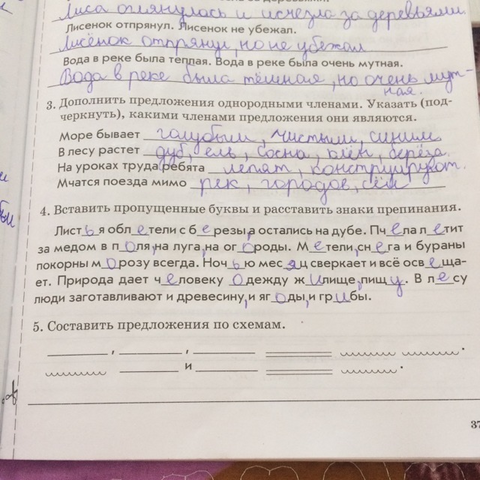 Лиса оглянулась и исчезла за деревьями.
Лисенок отпрянул. Лисенок не убежал.
Лисёнок отпрянул, но не убежал
Вода в реке была теплая. Вода в реке была очень мутная.
Вода в реке была тёплая, но очень мут-
ная.
3. Дополнить предложения однородными членами. Указать (под-
черкнуть), какими членами предложения они являются.
Море бывает голубым, чистым, синим
В лесу растет дуб, ель, сосна, клён, берёза.
На уроках труда ребята лепят, конструируют.
Мчатся поезда мимо рек, городов, сёл
4. Вставить пропущенные буквы и расставить знаки препинания.
Листья облетели с березы, а остались на дубе. Пчела летит
за медом в поля, на луга, на огороды. Метели, снега и бураны
покорны морозу всегда. Ночью месяц сверкает и всё освеща-
ет. Природа дает человеку одежду, жилище, пищу. В лесу
люди заготавливают и древесину, и ягоды, и грибы.
5. Составить предложения по схемам.
, , .
и .
37